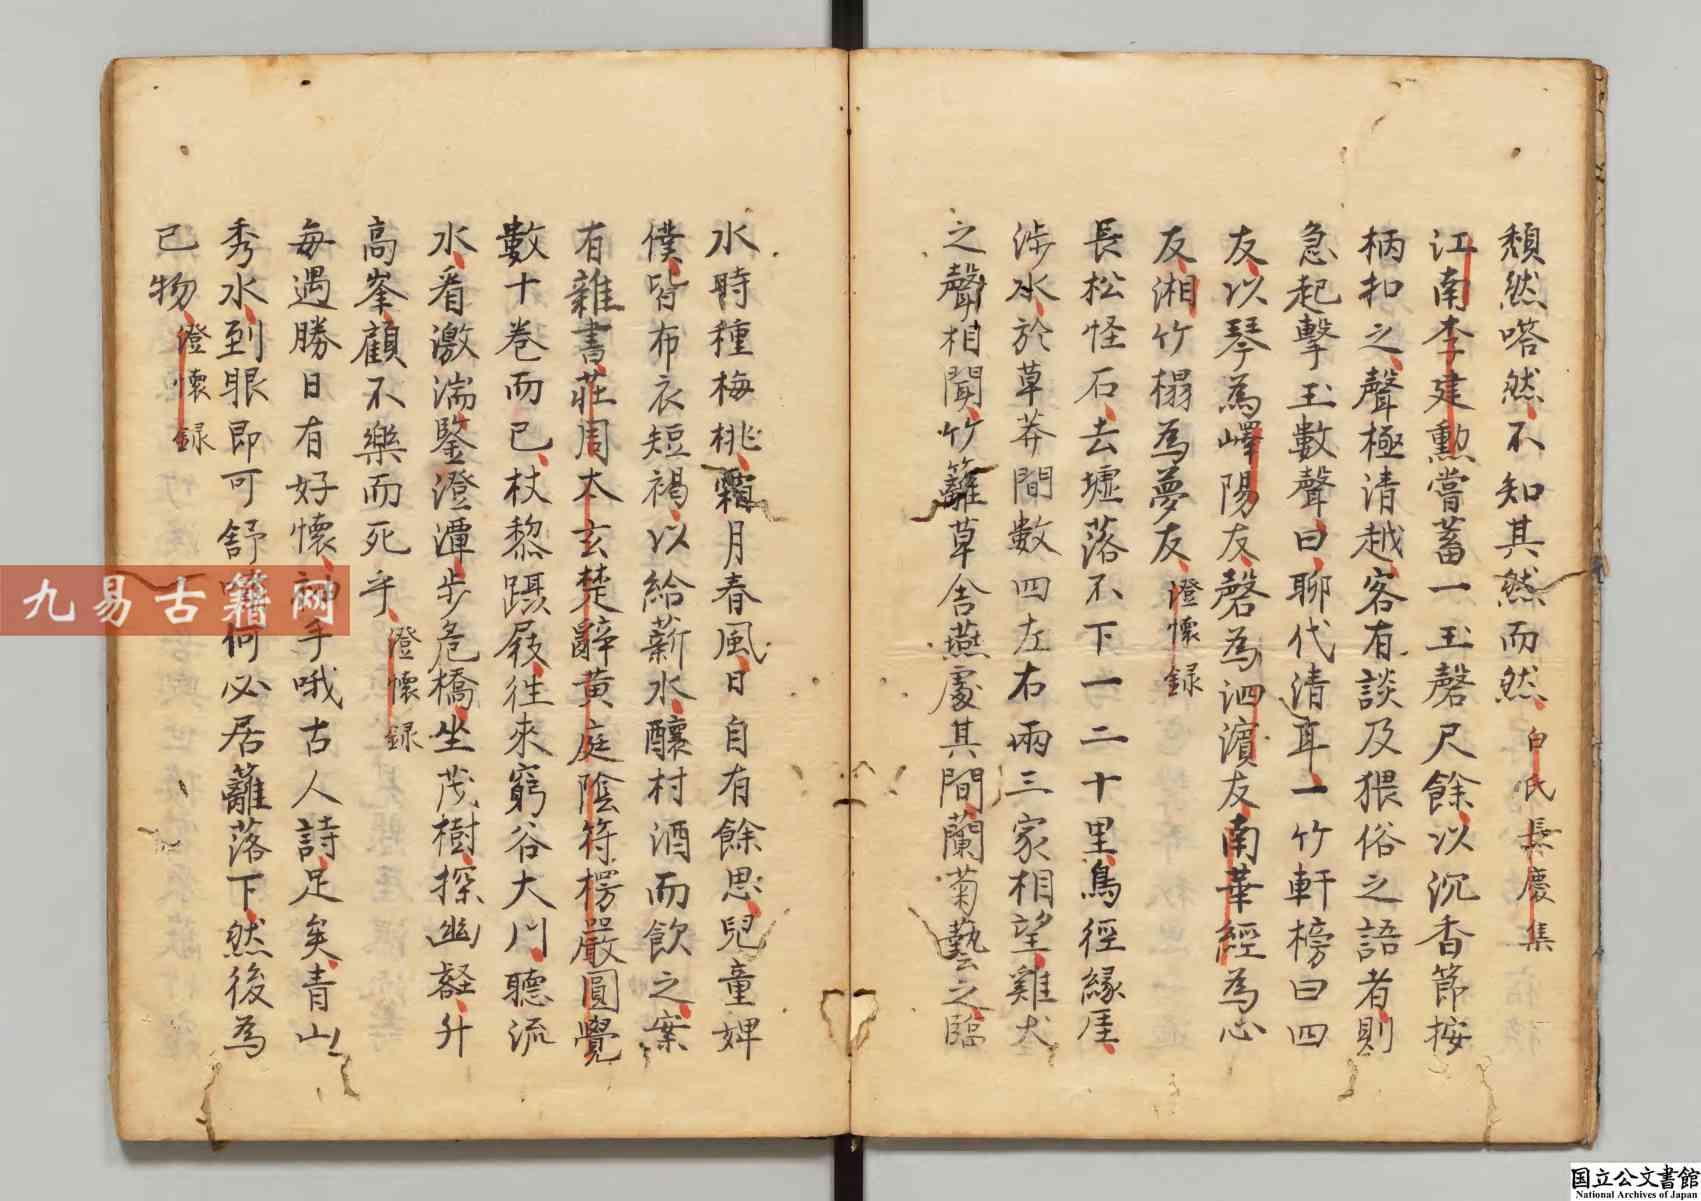 頹然嗒然不知其然而然白氏長慶集
江南李建勲嘗蓄一玉磬尺餘以沉香節按
柄扣之聲極清越客有談及猥俗之語者則
急起擊玉數聲曰聊代清耳一竹軒榜曰四
友以琴為嶧陽友磬為泗濵友南華經為心
友湘竹榻為夢友澄懷録
長松怪石去墟落不下一二十里鳥徑緣厓
渉水於草莽間數四左右兩三家相望雞犬
之聲相聞竹籬草舍燕處其間蘭菊藝之臨
水時種梅桃霜月春風日自有餘思兒童婢
僕皆布衣短褐以給薪水釀村酒而飲之案
有雜書莊周本玄楚辭黄庭陰符楞嚴圓覺
數十巻而已杖藜躡屐徃來窮谷大川聽流
水看激湍鑒澄潭步危橋坐茂樹探幽壑升
高峯顧不樂而死乎澄懷録
每遇勝日有好懷手哦古人詩足矣青山
秀水到眼即可舒何必居蘺落下然後為
已物澄懷録
九易古籍网
国立公文書館
National Archives of Japan